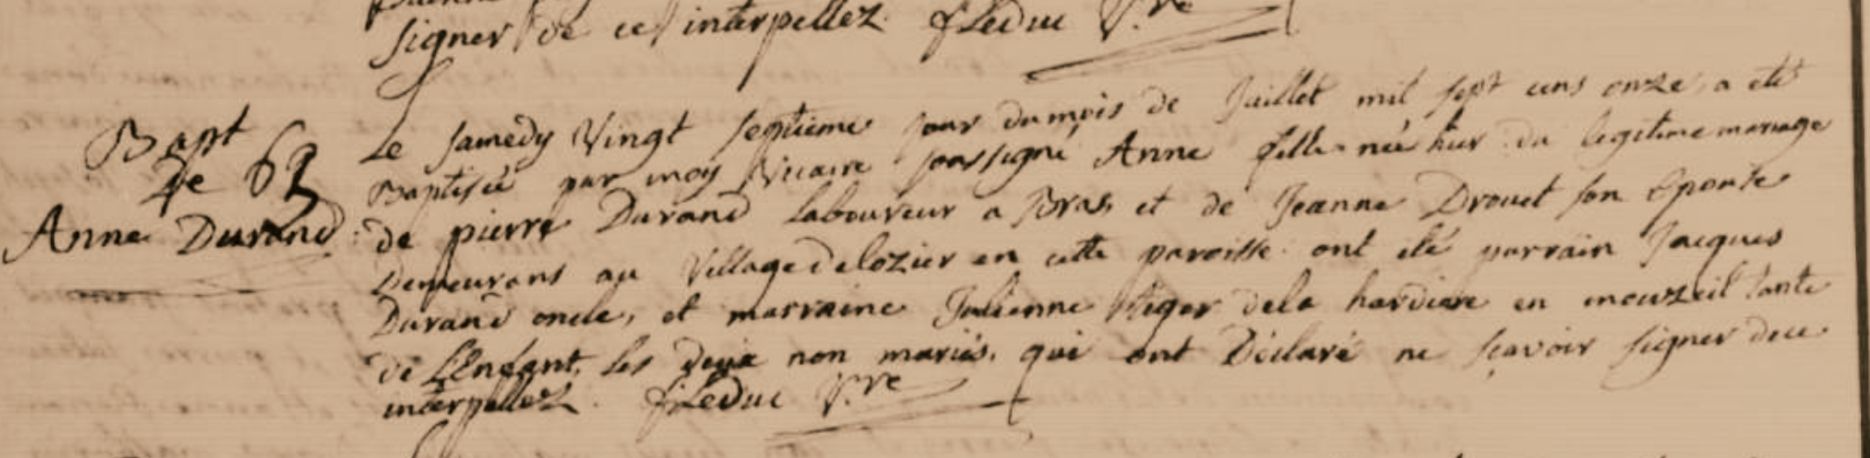 signer de ce interpellez fLeduc V.re
Bapt
De 63
Anne Durand
Le samedy Vingt septieme jour du mois de Juillet mil sept cens onze, a eté
Baptisée par moy Vicaire soussigné Anne fille née hier du legitime mariage
de pierre Durand Laboureur a Bras, et de Jeanne Drouet son Epouse
Demeurans au Village de lozier en cette paroisse. ont eté parrain Jacques
Durand oncle, et marraine Julienne dela hardiere en mouzeil tante
de LEnfant, les Deux non mariés, qui ont Déclaré ne sçavoir signer de ce
interpellez. fLeduc V.re